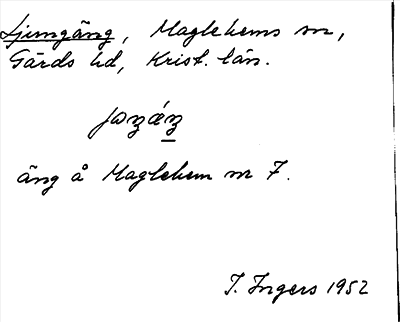 Ljungäng, Maglehems sn,
Gärds hd, Krist. län.
äng å Maglehem nr 7.
I. Ingers 1952